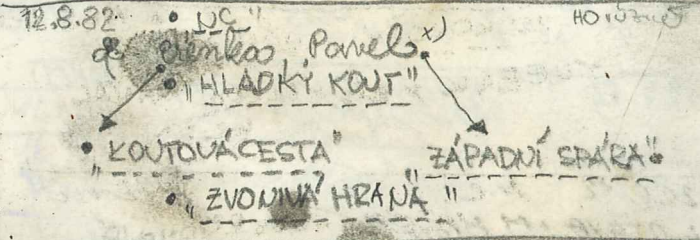 12.8.82 • NC"
Pavel x)
• "HLADKÝ KOUT"
• "KOUTOVÁ CESTA" "ZÁPADNÍ SPÁRA"•
• "ZVONIVÁ HRANA"